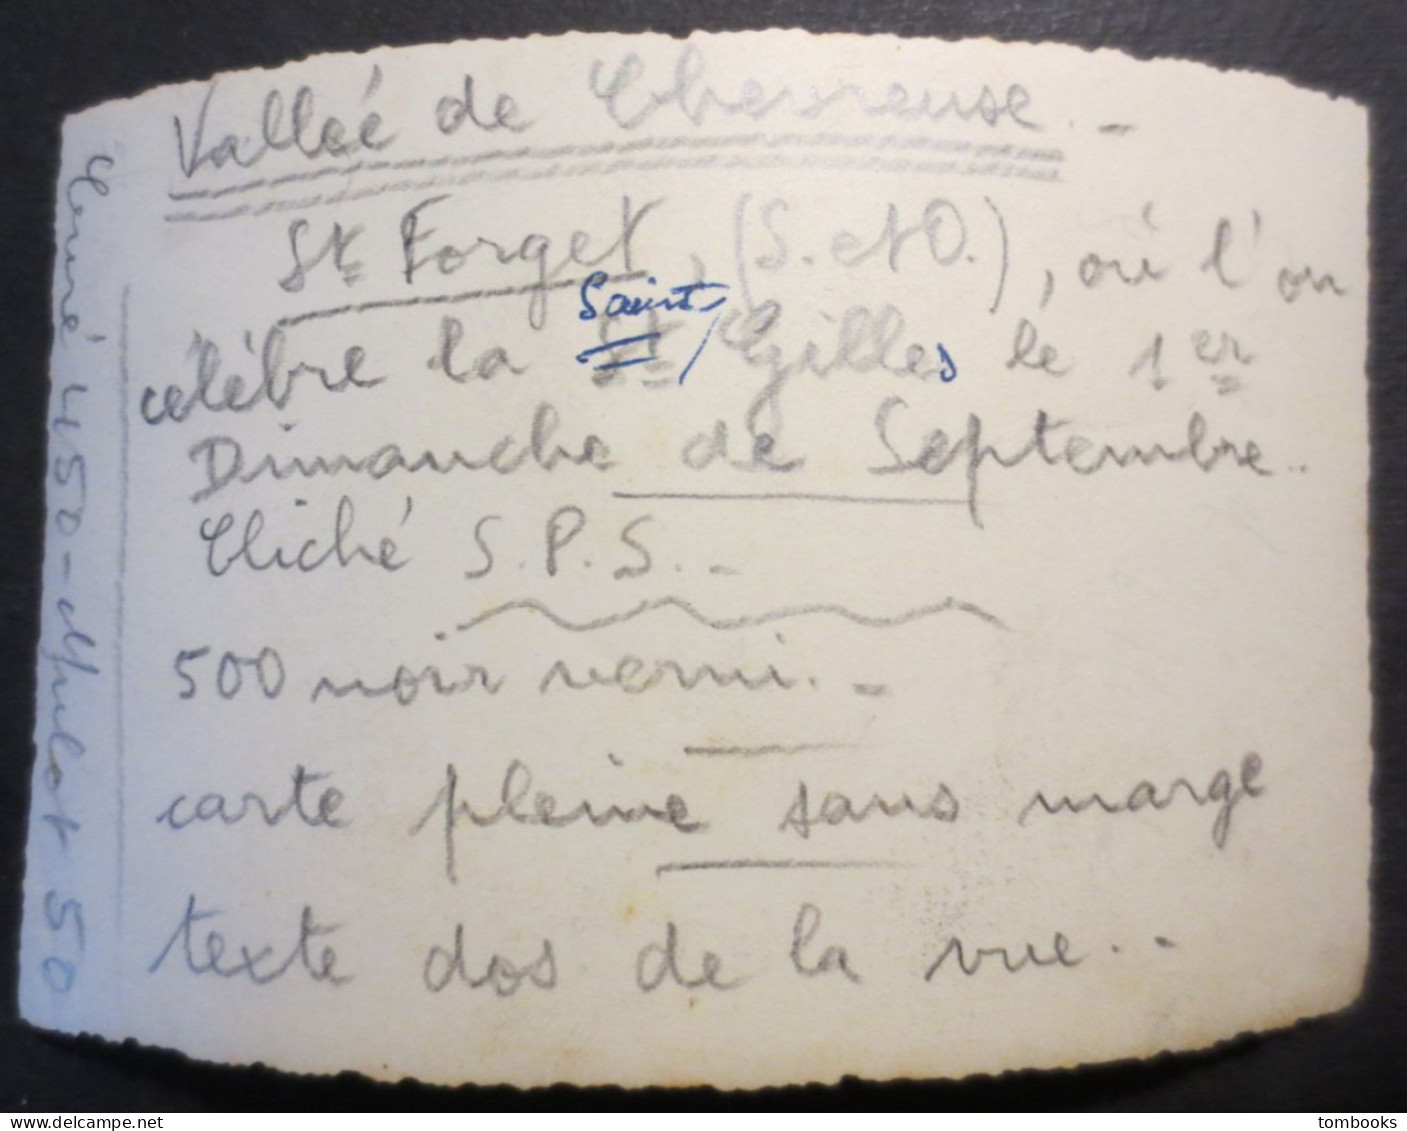 Vallée de Chevreuse. -
St Forget, (S. et O.), où l'on
Saint
célèbre la St Gilles le 1er
Dimanche de Septembre..
Cliché S.P.S. -
500 noir verni. -
carte pleine sans marge
texte dos de la vue. -
450 - Mulot 50
tombooks
delcampe.net